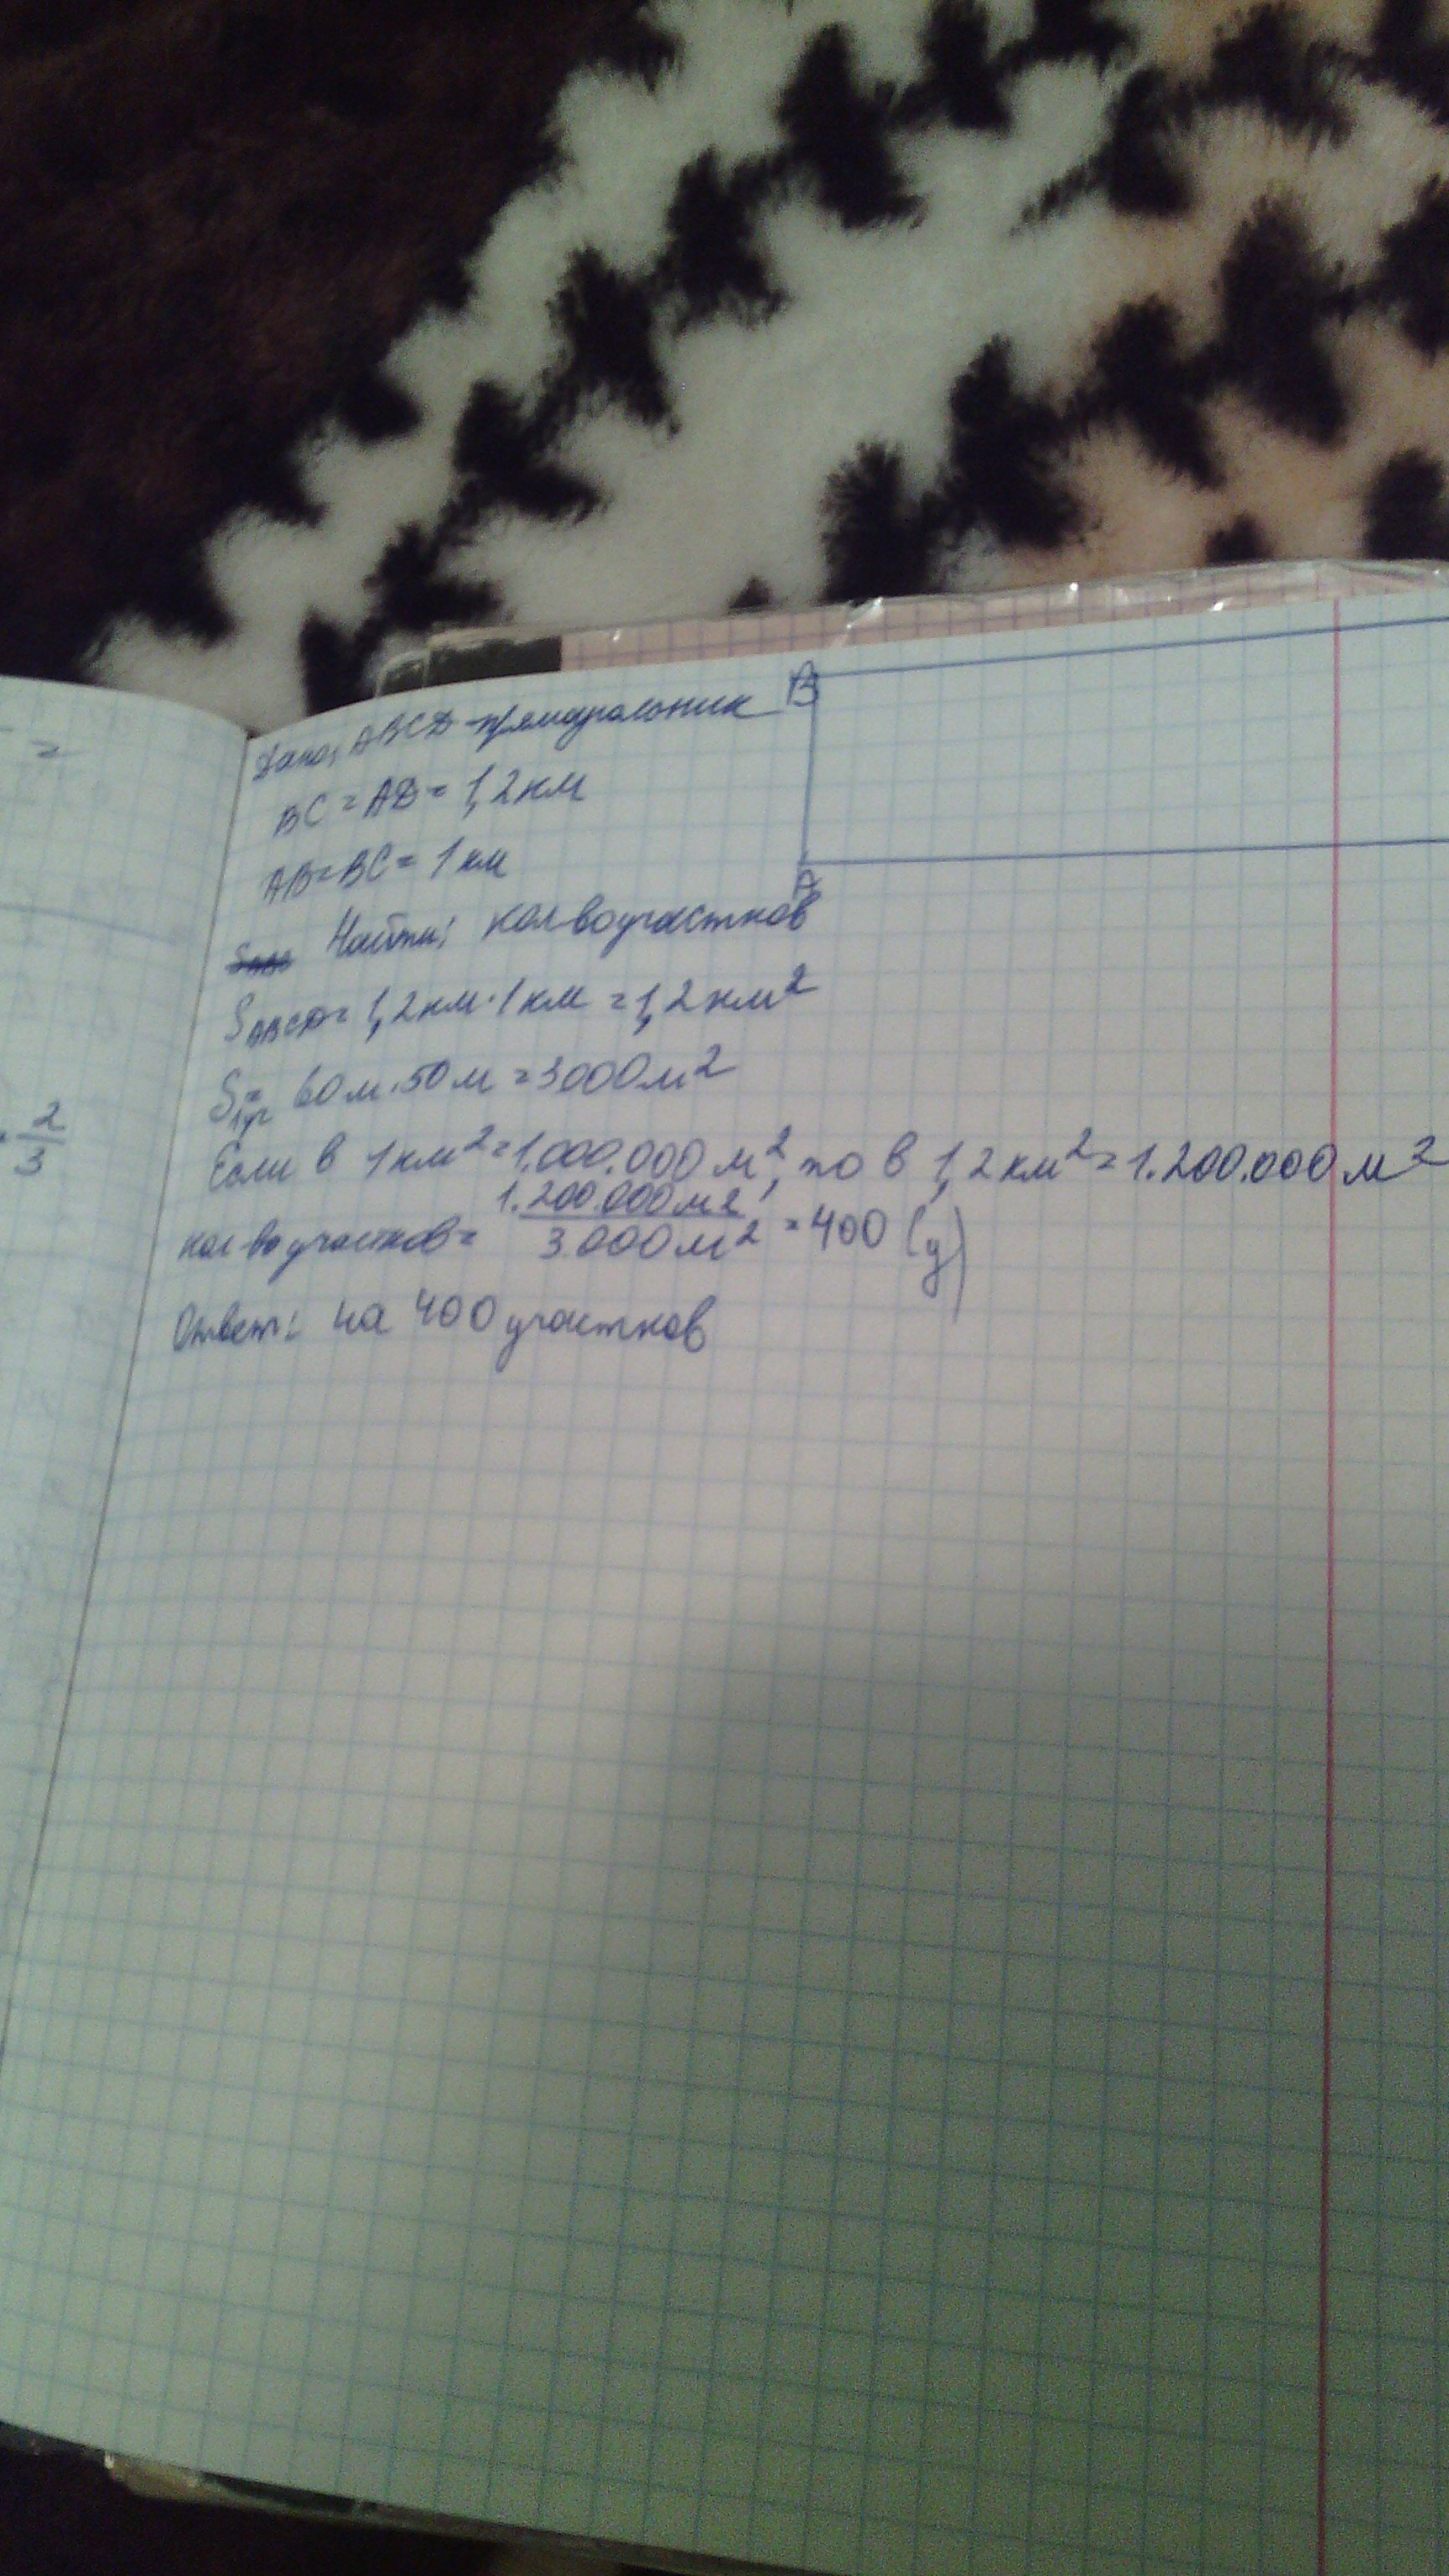 =
· 2/3
Дано: ABCD - прямоугольник
B
BC = AD = 1,2 км
AB = BC = 1 км
A
Найти: кол-во участков
SABCD = 1,2 км · 1 км = 1,2 км²
S1уч = 60 м · 50 м = 3000 м²
Если в 1 км² = 1.000.000 м², то в 1,2 км² = 1.200.000 м²
кол-во участков = 1.200.000 м² / 3.000 м² = 400 (у)
Ответ: на 400 участков